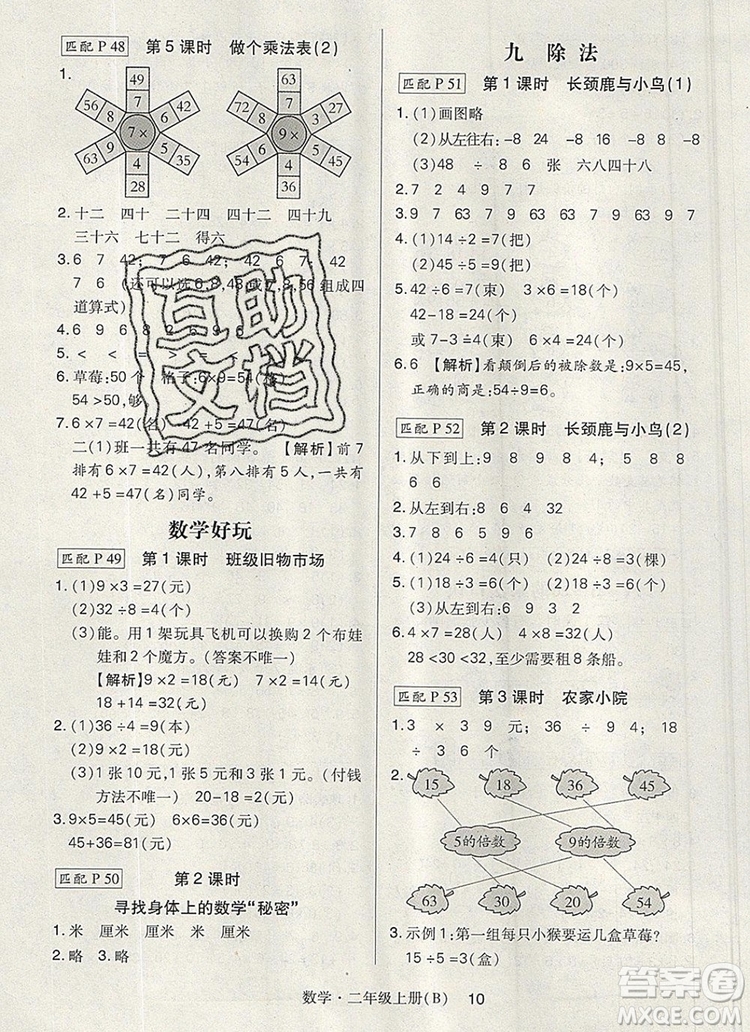 匹配 P 48 第 5 课时 做个乘法表(2)
1.
49
7
56 8 9 63
7×
42 6 5 35
4
28
63
7
72 8 6 54
9×
81 9 5 45
4
36
2. 十二 四十 二十四 四十四 四十九
三十六 七十二 得六
3. 6 7 42; 7 6 42; 42
7 6 (还可以选 6,8,48或7,8,56组成四
道算式)
4. 6 9 6 8
5. < < <
6. 草莓:50 个 格子:6×9=54(个)
54 >50,够
7. 6×7=42(名) 42+5=47(名)
二(1)班一共有 47 名同学。【解析】前 7
排有 6×7=42(人),第八排有 5 人,一共有
42+5=47(名)同学。
数学好玩
匹配 P 49 第 1 课时 班级旧物市场
1. (1)9×3=27(元)
(2)32÷8=4(个)
(3)能。用 1 架玩具飞机可以换购 2 个布娃
娃和 2 个魔方。(答案不唯一)
【解析】9×2=18(元) 7×2=14(元)
18+14=32(元)
2. (1)36÷4=9(本)
(2)9×2=18(元)
(3)1 张 10 元,1 张 5 元,3 张 1 元。(付钱
方法不唯一) 20-18=2(元)
3. 9×5=45(元) 6×6=36(元)
45+36=81(元)
匹配 P 50 第 2 课时
寻找身体上的数学“秘密”
1. 米 厘米 厘米 厘米 米 厘米
2. 略 3. 略
九 除法
匹配 P 51 第 1 课时 长颈鹿与小鸟(1)
1. (1)画图略
(2)从左往右:-8 24 -8 -8 8 -8
(3)48 ÷ 8 6 张 六八四十八
2. 7 2 4 9 5 7
3. 9 7 63 7 9 63 63 7 9 63 9 7
4. (1)14÷2=7(把)
(2)45÷9=5(把)
5. 42÷6=7(束) 3×6=18(个)
42-18=24(个)
或 7-3=4(束) 4×6=24(个)
6. 6 【解析】看颠倒后的被除数是:9×5=45,
正确的商是:54÷9=6。
匹配 P 52 第 2 课时 长颈鹿与小鸟(2)
1. 从下到上: 9 8 9 8 4; 5 3 4
6 6
2. 从左到右:8 6 4 32
3. 7 8 6 5 9 6
4. (1)24÷6=4(只) (2)32÷4=8(棵)
5. (1)18÷3=6(个) (2)18÷6=3(个)
(3)从左到右:6 3 9 2
6. 4×7=28(人) 4×8=32(人)
28<30<32,至少需要租 8 条船。
匹配 P 53 第 3 课时 农家小院
1. 3 × 3 9 元; 36 ÷ 9 4; 18
÷ 3 6 个
2. 15 18 36 45
5的倍数 9的倍数
63 30 20 54
3. 示例 1:第一组每只小猴要运几盒草莓?
15÷5=3(盒)
数学·二年级上册(B) 10
互助
文档
答案圈
MXQE.COM